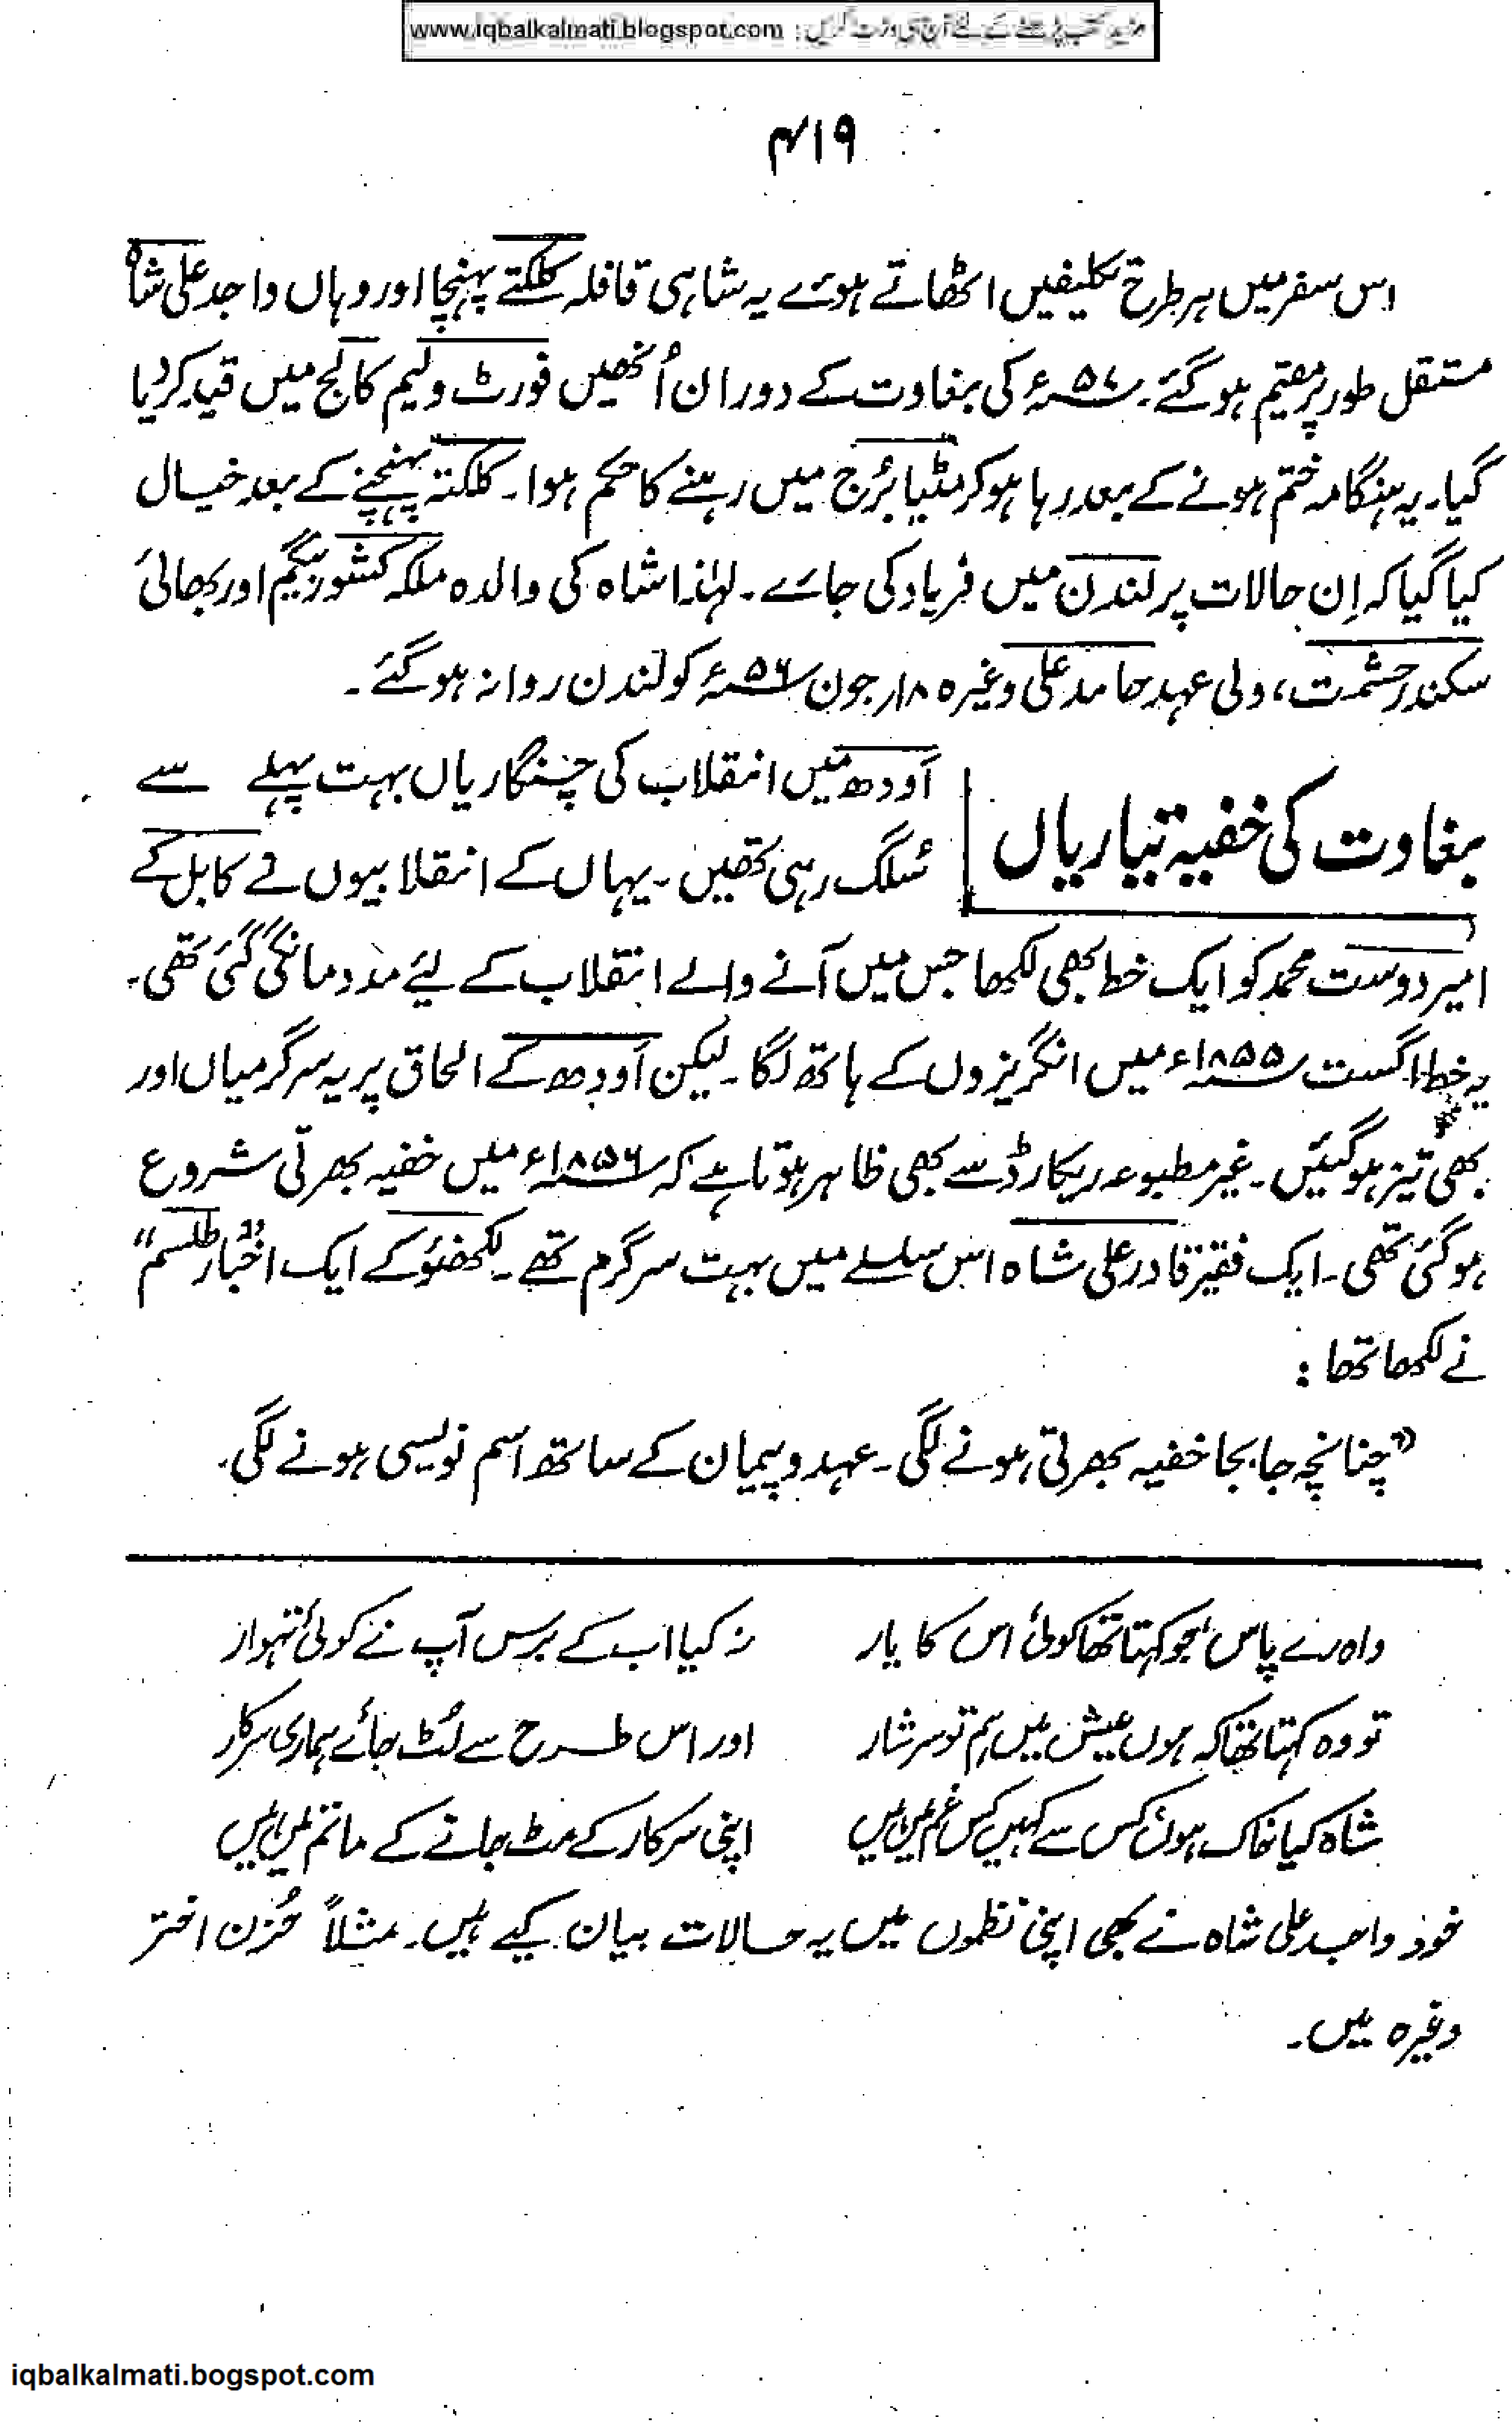 مزید کتب پڑھنے کے لئے آج ہی وزٹ کریں : www.iqbalkalmati.blogspot.com
۴۱۹
اس سفر میں ہر طرح تکلیفیں اٹھاتے ہوئے یہ شاہی قافلہ کلکتے پہنچا اور وہاں واجد علی شاہ
مستقل طور پر مقیم ہو گئے۔ ۵۷ء کی بغاوت کے دوران اُنھیں فورٹ ولیم کالج میں قید کر دیا
گیا۔ یہ ہنگامہ ختم ہونے کے بعد رہا ہو کر مٹیا بُرج میں رہنے کا حکم ہوا۔ کلکتہ پہنچنے کے بعد خیال
کیا گیا کہ اِن حالات پر لندن میں فریاد کی جائے۔ لہٰذا شاہ کی والدہ ملکہ کشور بیگم اور بھائی
سکندر حشمت، ولی عہد حامد علی وغیرہ ۱۸ر جون ۵۶ء کو لندن روانہ ہو گئے۔
بغاوت کی خفیہ تیاریاں
اَودھ میں انقلاب کی چنگاریاں بہت پہلے سے
سُلگ رہی تھیں۔ یہاں کے انقلابیوں نے کابل کے
امیر دوست محمد کو ایک خط بھی لکھا جس میں آنے والے انقلاب کے لیے مدد مانگی گئی تھی۔
یہ خط اگست ۱۸۵۵ء میں انگریزوں کے ہاتھ لگا۔ لیکن اَودھ کے الحاق پر یہ سرگرمیاں اور
بھی تیز ہو گئیں۔ غیر مطبوعہ ریکارڈ سے بھی ظاہر ہوتا ہے کہ ۱۸۵۶ء میں خفیہ بھرتی شروع
ہو گئی تھی۔ ایک فقیر قادر علی شاہ اس سلسلے میں بہت سرگرم تھے۔ لکھنؤ کے ایک اخبار "طلسم"
نے لکھا تھا :
"چنانچہ جا بجا خفیہ بھرتی ہونے لگی۔ عہد و پیمان کے ساتھ اسم نویسی ہونے لگی۔
واہ رے پاس جو کہتا تھا کوئی اس کا یار نہ کیا اب کے برس آپ نے کوئی تہوار
تو وہ کہتا تھا کہ ہوں عیش میں ہم تو سرشار اور اس طرح سے لُٹ جائے ہماری سرکار
شاہ کیا خاک ہوں کس سے کہیں کس غم میں ہیں اپنی سرکار کے مٹ جانے کے ماتم میں ہیں
خود واجد علی شاہ نے بھی اپنی نظموں میں یہ حالات بیان کیے ہیں۔ مثلاً حُزن اختر
وغیرہ میں۔
iqbalkalmati.bogspot.com